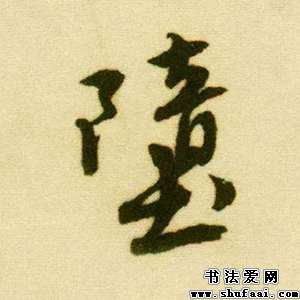 墮
书法爱网
www.shufaai.com